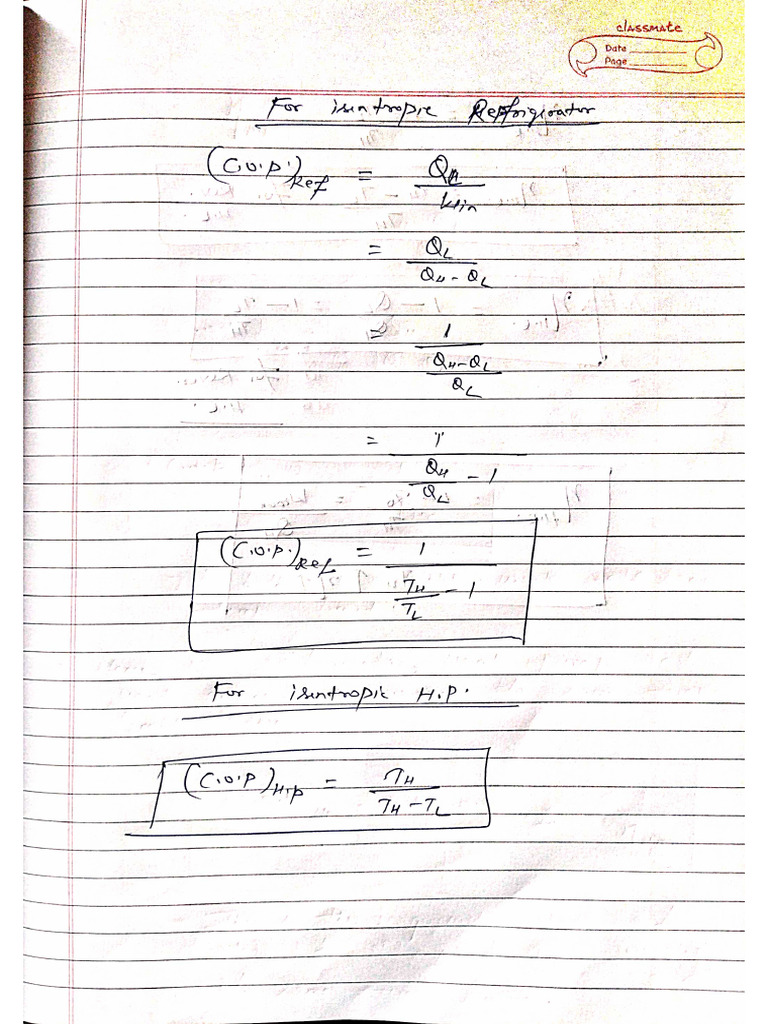 classmate
Date
Page
For isentropic Refrigirator
(C.O.P.)Ref = QL / Win
= QL / QH - QL
= 1 / QH - QL / QL
= 1 / QH / QL - 1
(C.O.P.)Ref = 1 / TH / TL - 1
For isentropic H.P.
(C.O.P)H.P = TH / TH - TL